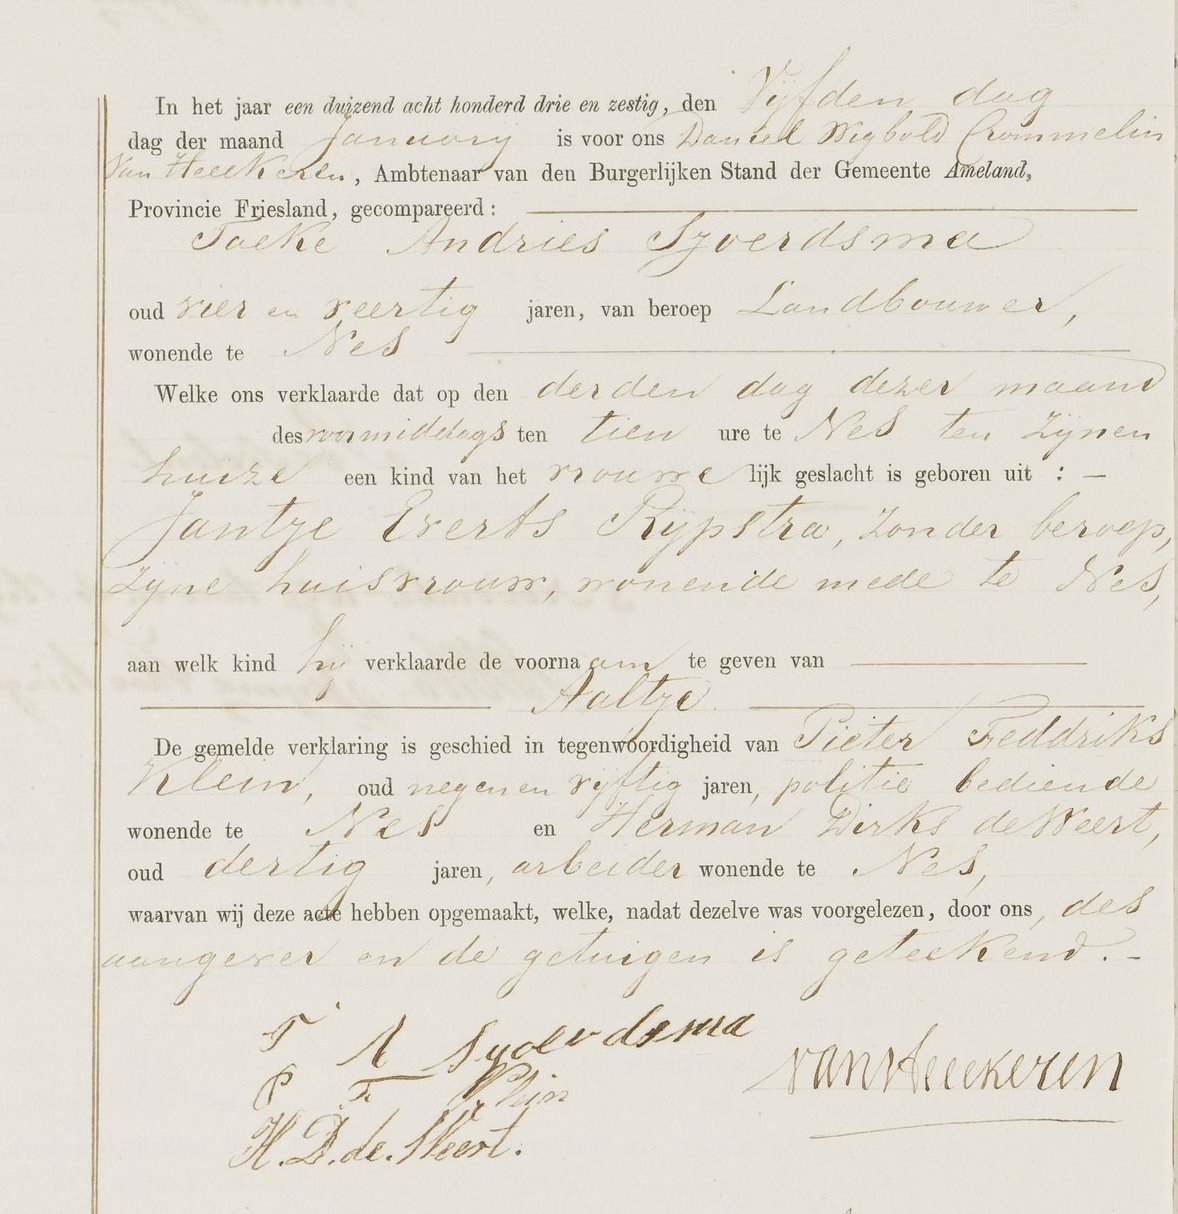 In het jaar een duizend acht honderd drie en zestig, den Vijfden dag
dag der maand January is voor ons Daniel Wigbold Crommelin
Van Heeckeren, Ambtenaar van den Burgerlijken Stand der Gemeente Ameland,
Provincie Friesland, gecompareerd:
Taeke Andries Sjoerdsma
oud vier en veertig jaren, van beroep Landbouwer,
wonende te Nes
Welke ons verklaarde dat op den derden dag dezer maand
des voormiddags ten tien ure te Nes ten zijnen
huize een kind van het vrouwelijk geslacht is geboren uit : –
Jantje Everts Rijpstra, zonder beroep,
zijne huisvrouw, wonende mede te Nes,
aan welk kind hij verklaarde de voornaam te geven van
Aaltje.
De gemelde verklaring is geschied in tegenwoordigheid van Pieter Feddriks
Klein, oud negen en vijftig jaren, politie bediende
wonende te Nes en Herman Dirks de Weert,
oud dertig jaren, arbeider wonende te Nes,
waarvan wij deze acte hebben opgemaakt, welke, nadat dezelve was voorgelezen, door ons, des
aangever en de getuigen is geteekend. –
T A Sjoerdsma
van Heeckeren
P F Klijn
H. D. de. Weert.